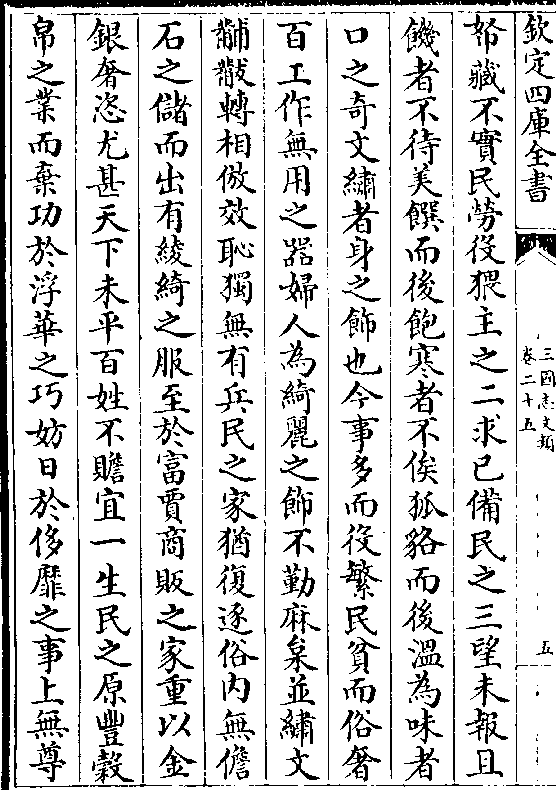 欽定四庫全書
三國志文類
卷二十五
五
帑藏不實民勞役猥主之二求已備民之三望未報且
饑者不待美饌而後飽寒者不俟狐貉而後溫為味者
口之奇文繡者身之飾也今事多而役繁民貧而俗奢
百工作無用之器婦人為綺麗之飾不勤麻枲並繡文
黼黻轉相倣效恥獨無有兵民之家猶復逐俗内無儋
石之儲而出有綾綺之服至於富賈商販之家重以金
銀奢恣尤甚天下未平百姓不贍宜一生民之原豐穀
帛之業而棄功於浮華之巧妨日於侈靡之事上無尊